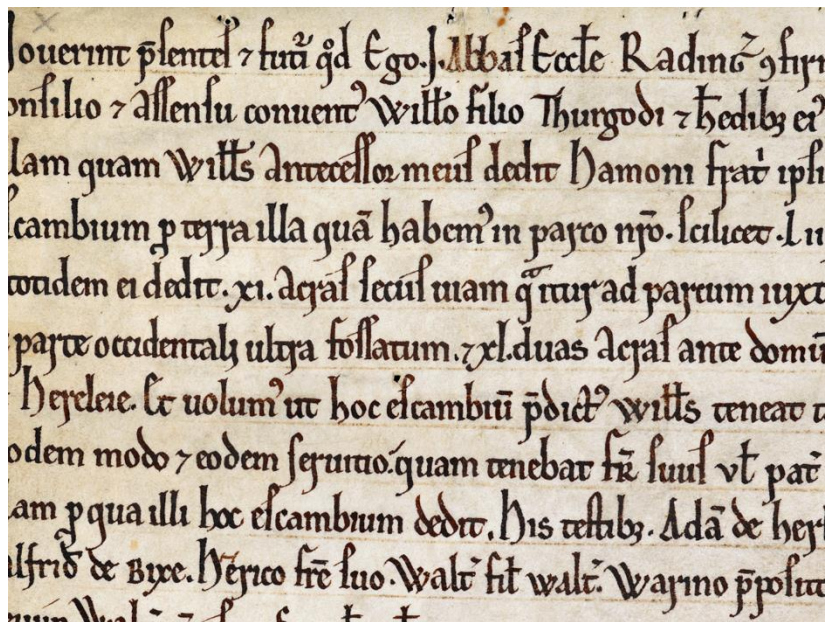 ouerint p̄sentes ⁊ futuri qd̄ Ego .J. Abbas Eccl̄e Rading ꝯfir
onsilio ⁊ assensu conuent᾽ Willo filio Thurgodi ⁊ h̄edibꝫ ei᾽
lam quam Wills antecessor meus dedit hamoni frat̄ ipsi
scambium ꝓ terra illa quā habem᾽ in parco nr̄o. scilicet.
totidem ei dedit. xi. acras secus uiam qͣ itur ad parcum iuxt
parte occidentalꝫ ultra fossatum. ⁊ xl. duas Acras ante domū
herleie. Et uolum᾽ ut hoc escambiū p̄dict᾽ Wills teneat
odem modo ⁊ eodem seruitio. quam tenebat fr̄ suus vl̄ pat̄
am ꝓ qua illi hoc escambium dedit. His testibꝫ. Adā de her
alfrid̄ de Bixe. Henrico fr̄e suo. Walt̄ fil̄ walt̄. Warino p̄posito